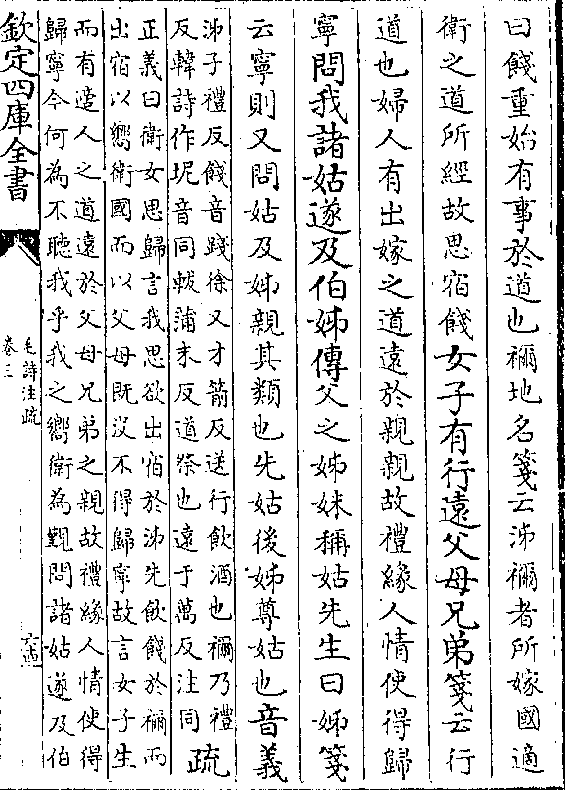 曰餞重始有事於道也禰地名箋云泲禰者所嫁國適
衛之道所經故思宿餞女子有行遠父母兄弟箋云行
道也婦人有出嫁之道遠於親親故禮緣人情使得歸
寧問我諸姑遂及伯姊傳父之姊妹稱姑先生曰姊箋
云寧則又問姑及姊親其類也先姑後姊尊姑也音義
泲子禮反餞音踐徐又才箭反送行飲酒也禰乃禮
反韓詩作坭音同軷蒲末反道祭也遠于萬反注同
疏
正義曰衛女思歸言我思欲出宿於泲先飲餞於禰而
出宿以嚮衛國而以父母既没不得歸寧故言女子生
而有適人之道遠於父母兄弟之親故禮緣人情使得
歸寧今何為不聽我乎我之嚮衛為覲問諸姑遂及伯
欽定四庫全書
毛詩注疏
卷三